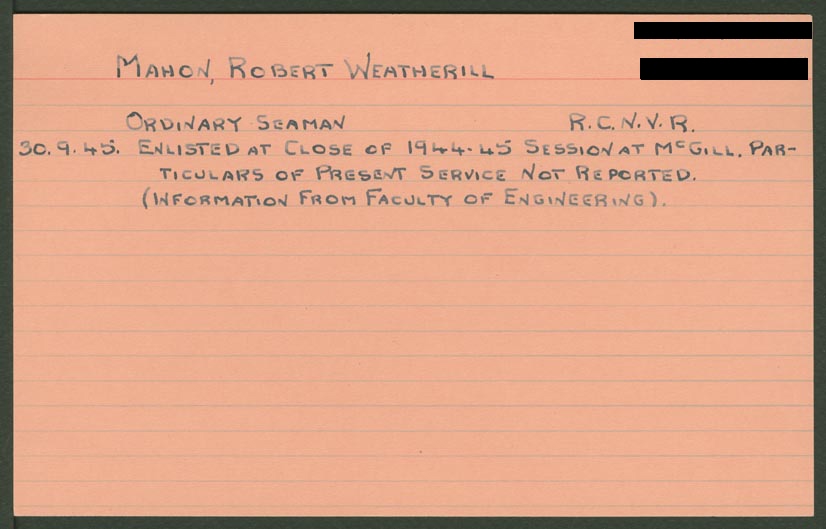 MAHON, ROBERT WEATHERILL
ORDINARY SEAMAN R.C.N.V.R.
30.9.45. ENLISTED AT CLOSE OF 1944-45 SESSION AT McGILL. PAR-
TICULARS OF PRESENT SERVICE NOT REPORTED.
(INFORMATION FROM FACULTY OF ENGINEERING).